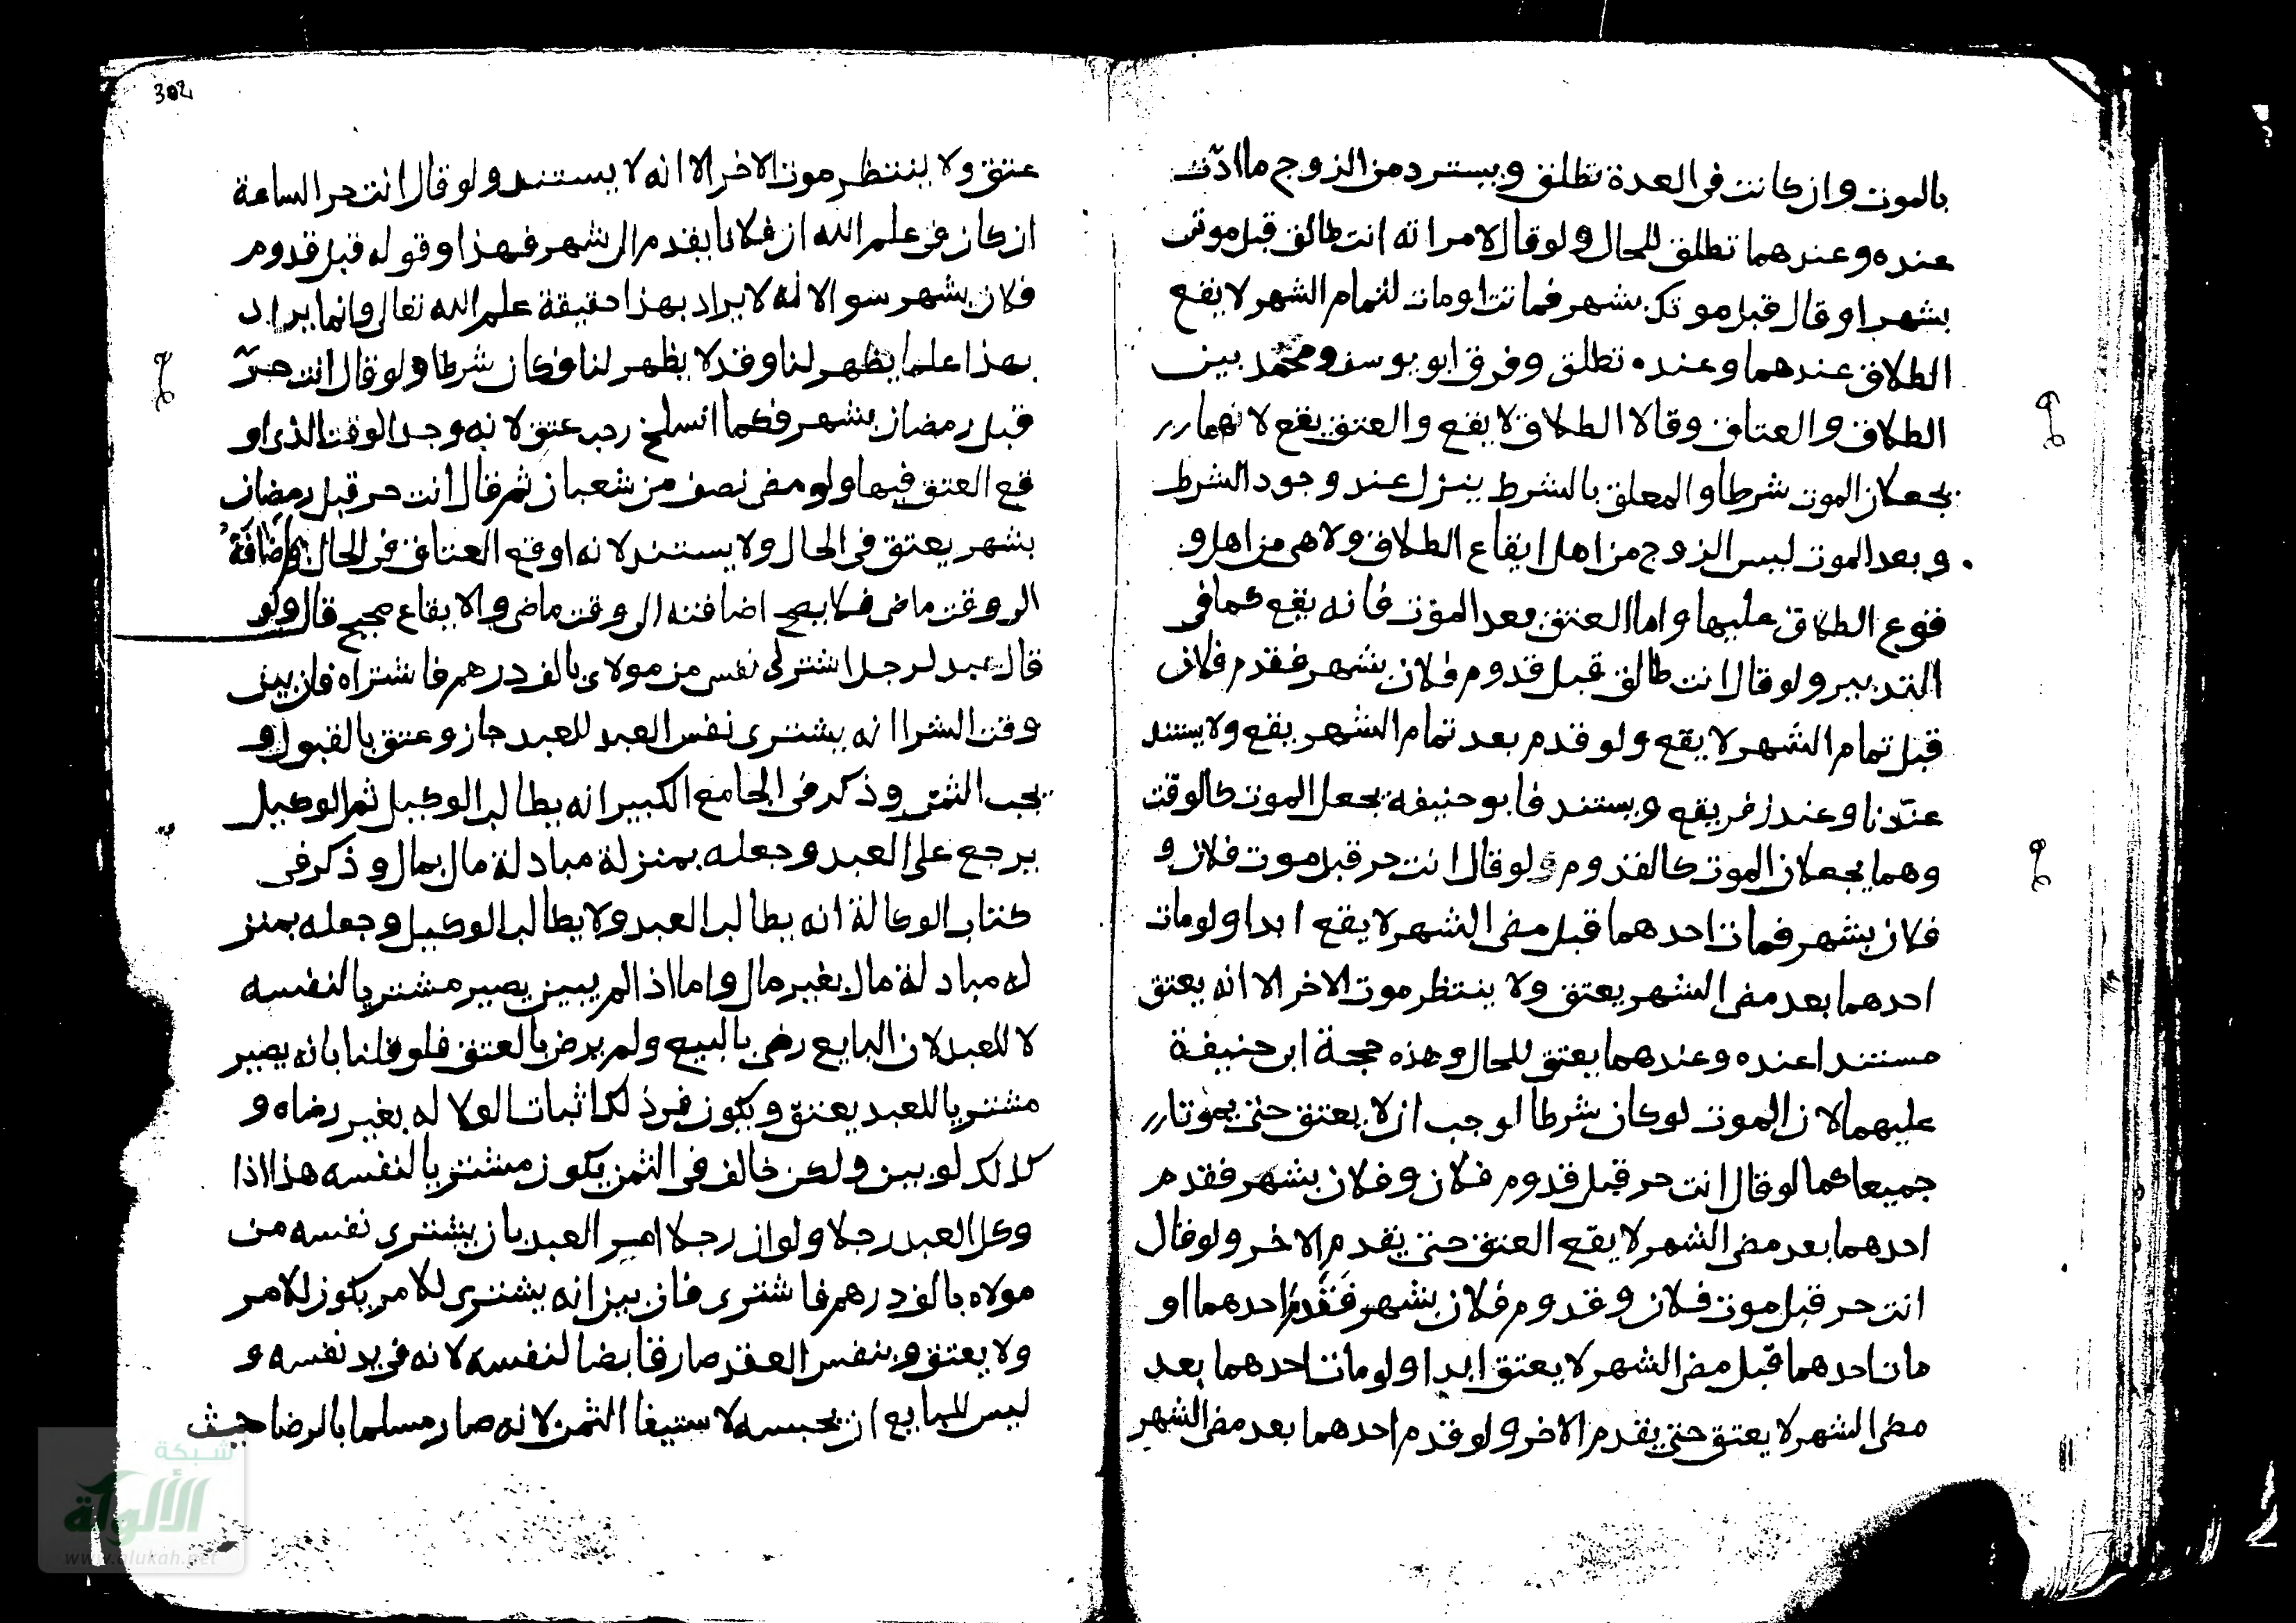 بالموت وان كانت فى العدة تطلق ويسترد من الزوج ما ادت
عنده وعندهما تطلق للحال ولو قال لامراته انت طالق قبل موتى
بشهر او قال قبل موتك بشهر فماتت او مات لتمام الشهر لا يقع
الطلاق عندهما وعنده تطلق وفرق ابو يوسف ومحمد بين
الطلاق والعتاق وقالا الطلاق لا يقع والعتق يقع لانهما
يجعلان الموت شرطا والمعلق بالشرط ينزل عند وجود الشرط
وبعد الموت ليس الزوج من اهل ايقاع الطلاق ولا هى من اهل و
قوع الطلاق عليها واما العتق بعد الموت فانه يقع كما فى
التدبير ولو قال انت طالق قبل قدوم فلان بشهر فقدم فلان
قبل تمام الشهر لا يقع ولو قدم بعد تمام الشهر يقع ولا يستند
عندنا وعند زفر يقع ويستند فابو حنيفة يجعل الموت كالوقت
وهما يجعلان الموت كالقدوم ولو قال انت حر قبل موت فلان و
فلان بشهر فمات احدهما قبل مضى الشهر لا يقع ابدا ولو مات
احدهما بعد مضى الشهر يعتق ولا ينتظر موت الاخر الا انه يعتق
مستندا عنده وعندهما يعتق للحال وهذه حجة ابى حنيفة
عليهما لان الموت لو كان شرطا لوجب ان لا يعتق حتى يموتا
جميعا كما لو قال انت حر قبل قدوم فلان وفلان بشهر فقدم
احدهما بعد مضى الشهر لا يقع العتق حتى يقدم الاخر ولو قال
انت حر قبل موت فلان وقدوم فلان بشهر فقدم احدهما او
مات احدهما قبل مضى الشهر لا يعتق ابدا ولو مات احدهما بعد
مضى الشهر لا يعتق حتى يقدم الاخر ولو قدم احدهما بعد مضى الشهر
302
عتق ولا ينتظر موت الاخر الا انه لا يستند ولو قال انت حر الساعة
ان كان فى علم الله ان فلانا يقدم الى شهر فهذا وقوله قبل قدوم
فلان بشهر سوا الا انه لا يراد بهذا حقيقة علم الله تعالى وانما يراد
بهذا علما يظهر لنا وقد لا يظهر لنا فكان شرطا ولو قال انت حر
قبل رمضان بشهر فكما انسلخ رجب عتق لانه وجد الوقت الذى او
قع العتق فيها ولو مضى نصف من شعبان ثم قال انت حر قبل رمضان
بشهر يعتق فى الحال ولا يستند لانه اوقع العتاق فى الحال واضافة
الى وقت ماض فلا يصح اضافته الى وقت ماض والايقاع صحيح قال ولو
قال عبد لرجل اشتر لى نفسى من مولاى بالف درهم فاشتراه فان بين
وقت الشرا انه يشترى نفس العبد للعبد جاز وعتق بالقبول و
يجب الثمن وذكر فى الجامع الكبير انه يطالب الوكيل ثم الوكيل
يرجع على العبد وجعله بمنزلة مبادلة مال بمال وذكر فى
كتاب الوكالة انه يطالب العبد ولا يطالب الوكيل وجعله بمنز
له مبادلة مال بغير مال واما اذا لم يبين يصير مشتريا لنفسه
لا للعبد لان البايع رضى بالبيع ولم يرض بالعتق فلو قلنا بانه يصير
مشتريا للعبد يعتق ويكون فى ذلك اثبات الولا له بغير رضاه و
كذلك لو بين ولكن خالف فى الثمن يكون مشتريا لنفسه هذا اذا
وكل العبد رجلا ولو ان رجلا امر العبد بان يشترى نفسه من
مولاه بالف درهم فاشترى فان بين انه يشترى للامر يكون للامر
ولا يعتق وبنفس العقد صار قابضا لنفسه لانه فى يد نفسه و
ليس للبايع ان يحبسه لاستيفا الثمن لانه صار مسلما بالرضا حيث
شبكة
الألوكة
www.alukah.net